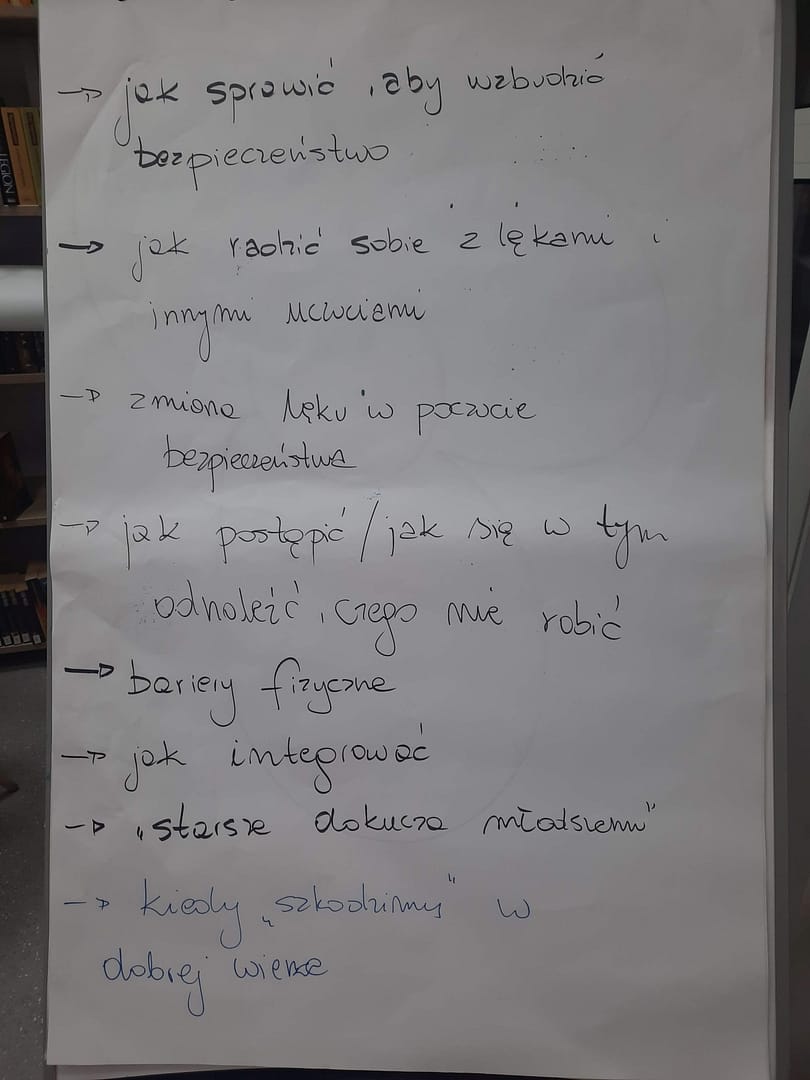 → jak sprawić, aby wzbudzić
bezpieczeństwo
→ jak radzić sobie z lękami i
innymi uczuciami
→ zmiana lęku w poczucie
bezpieczeństwa
→ jak postąpić / jak się w tym
odnaleźć, czego nie robić
→ bariery fizyczne
→ jak integrować
→ „starsze dokucza młodszemu"
→ kiedy „szkodzimy" w
dobrej wierze